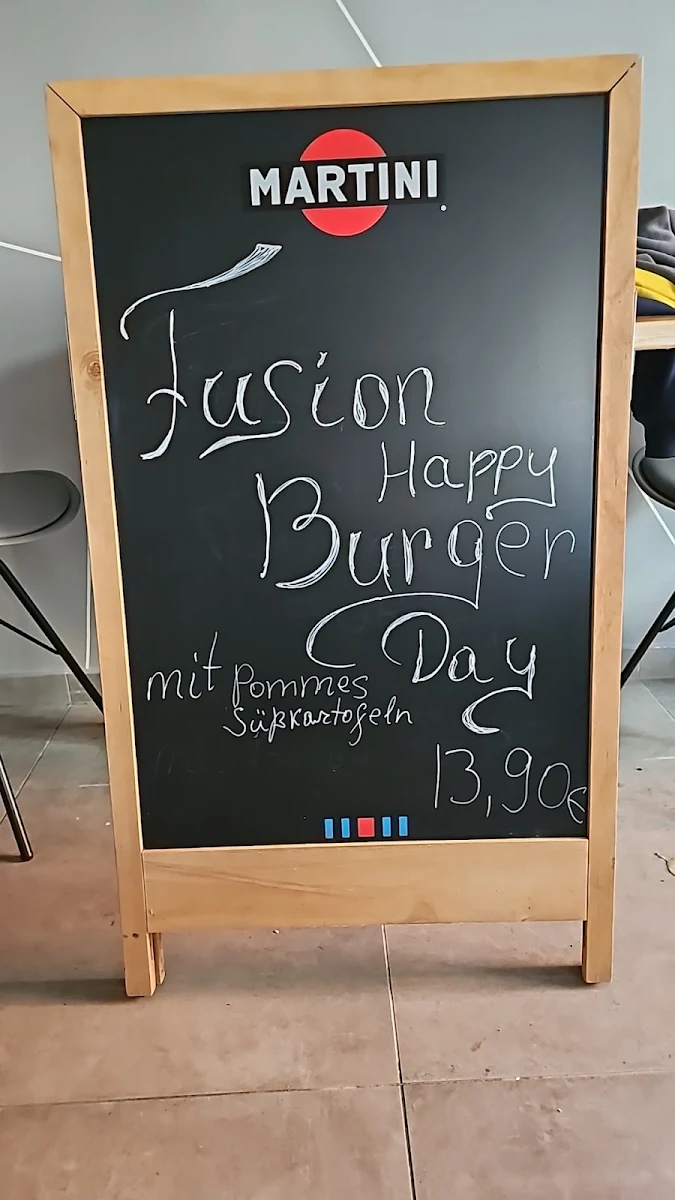 MARTINI
Fusion
Happy
Burger
Day
mit Pommes
Süßkartofeln
13,90€